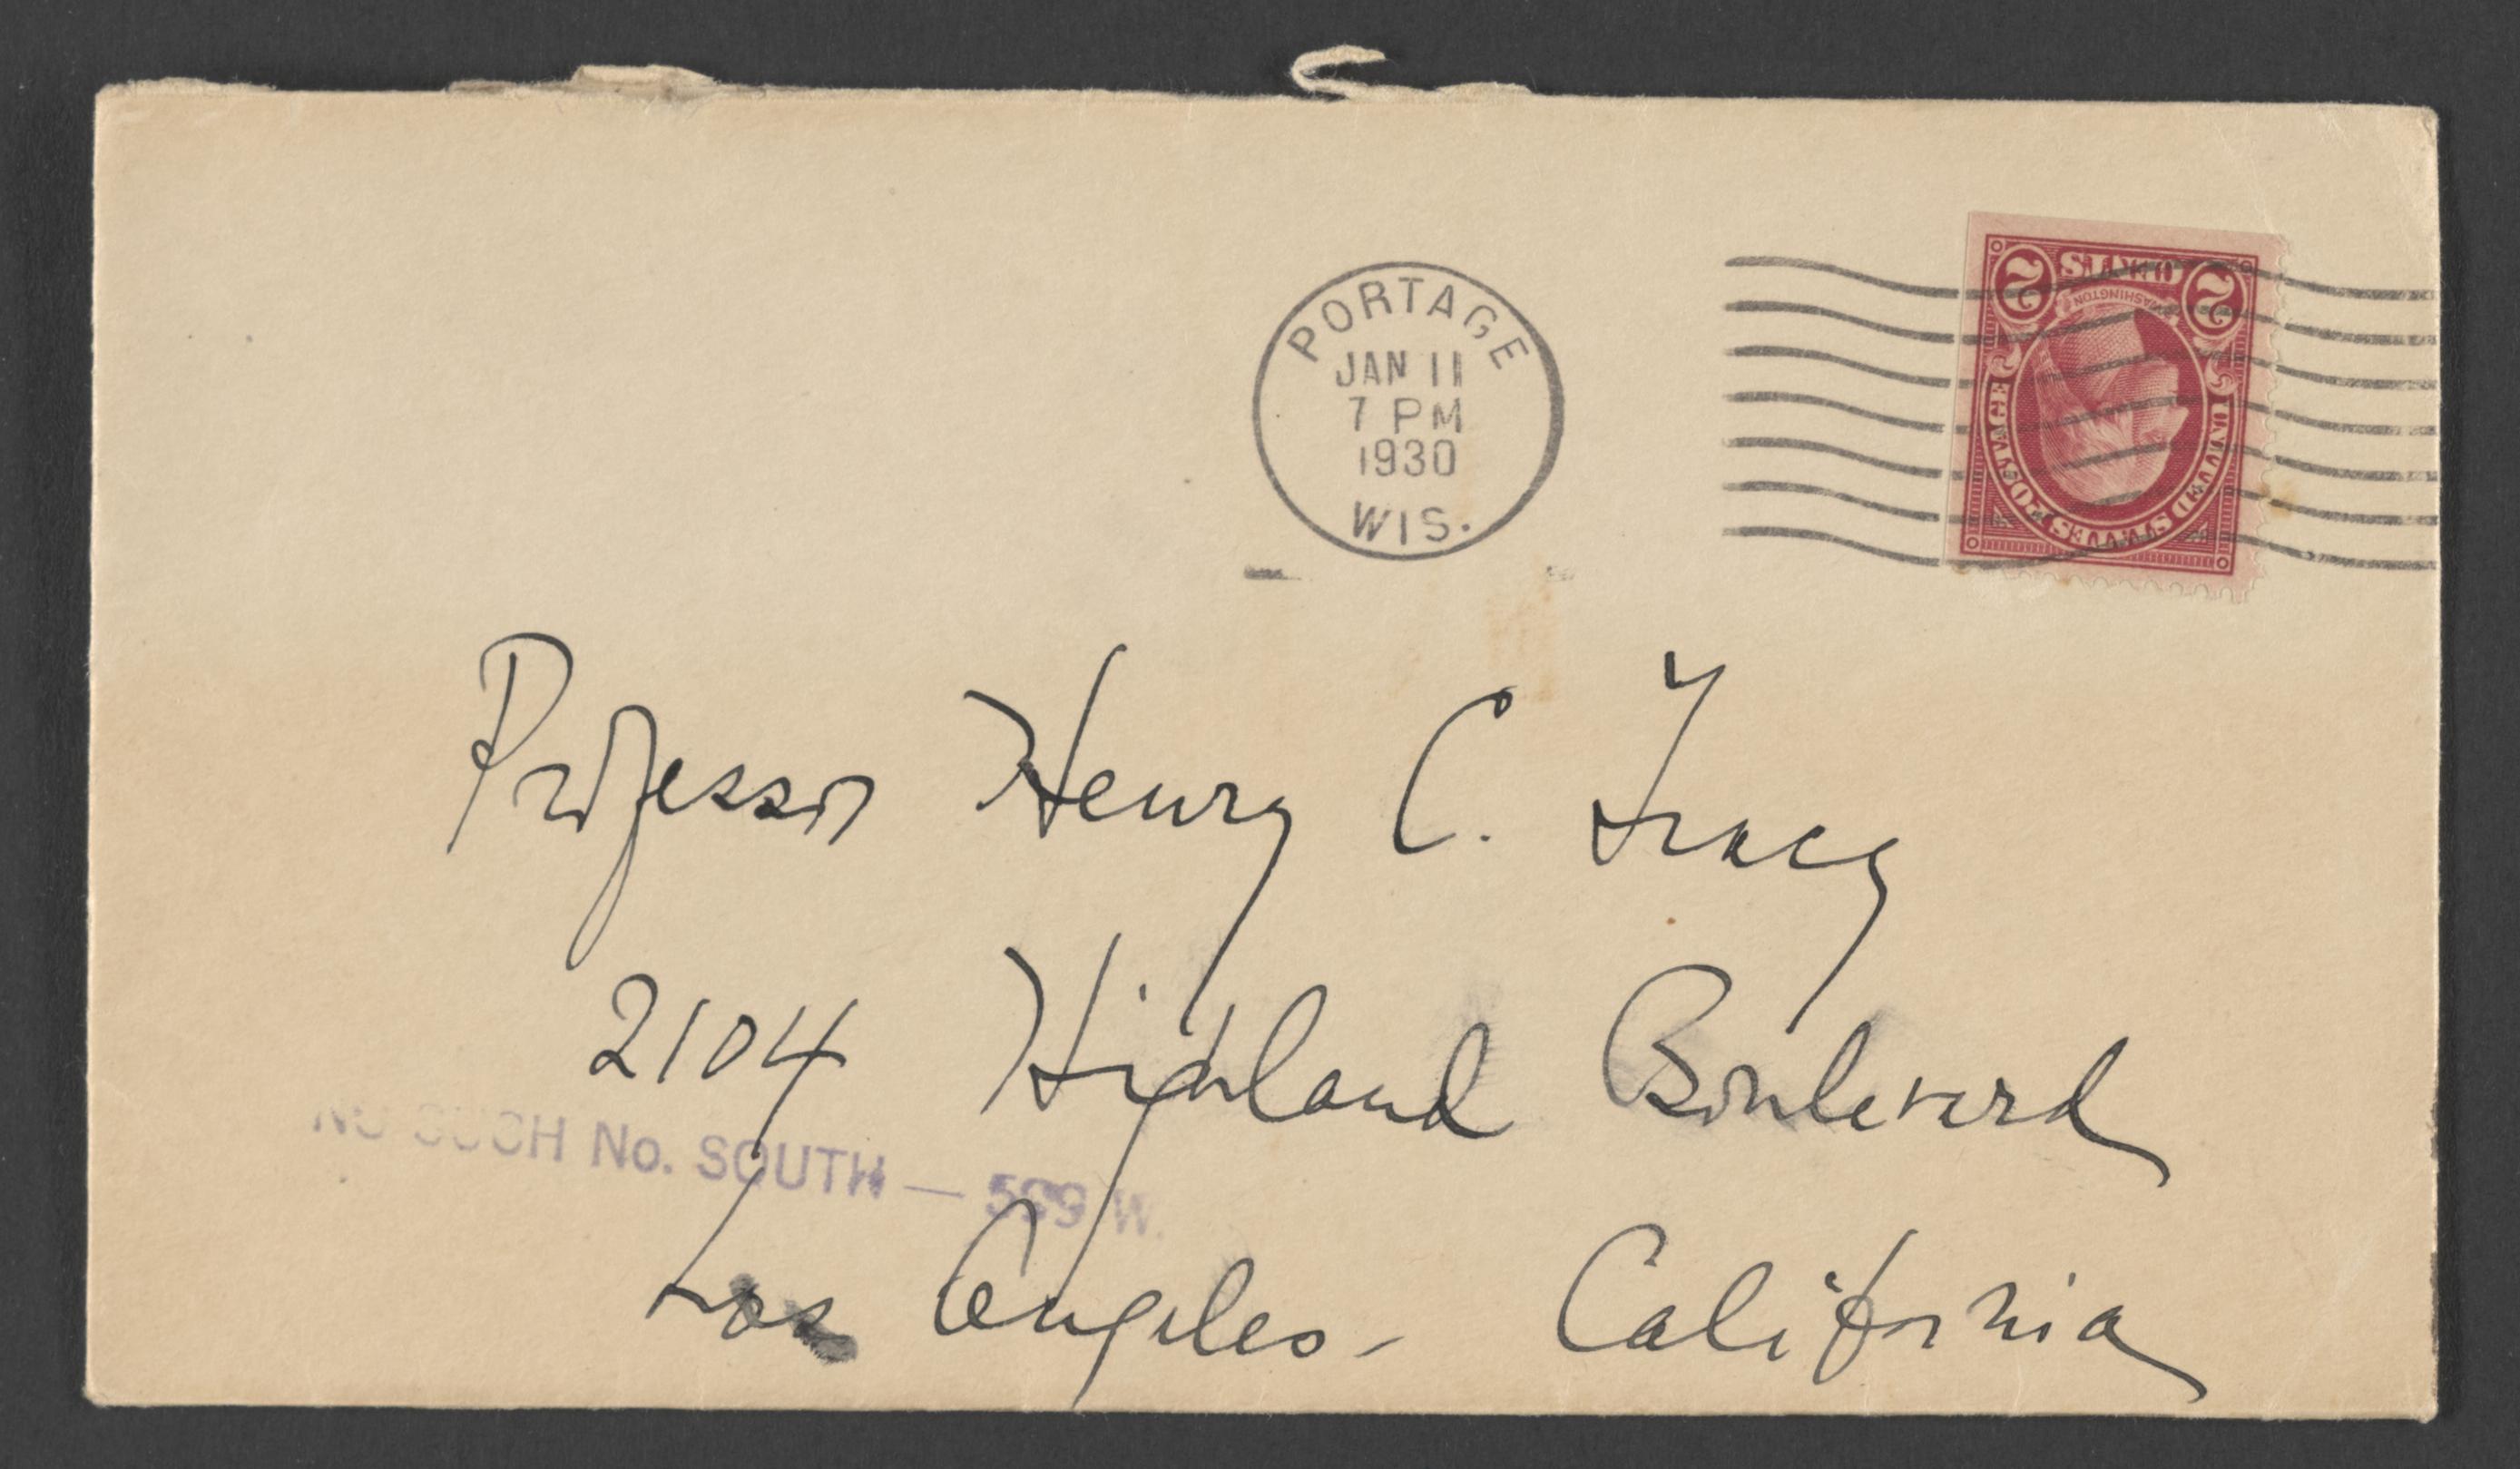 PORTAGE
JAN 11
7 PM
1930
WIS.
2 CENTS 2
WASHINGTON
UNITED STATES POSTAGE
Professor Henry C. Tracy
2104 Highland Boulevard
NO SUCH No. SOUTH — 599 W.
Los Angeles - California